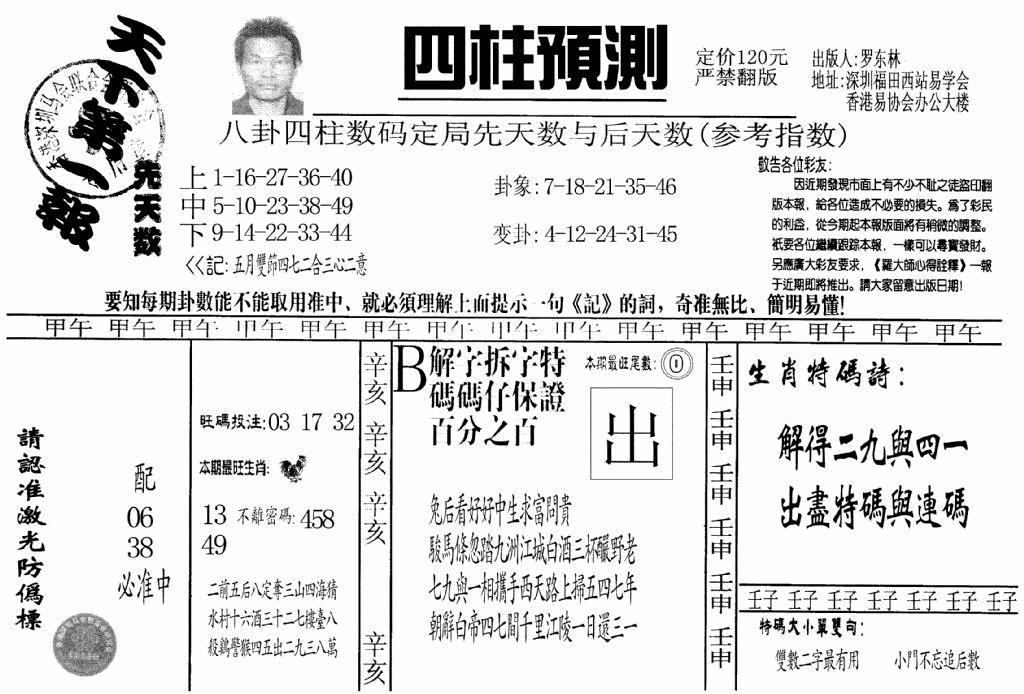 天下第一報
四柱預測
定价120元
严禁翻版
出版人:罗东林
地址:深圳福田西站易学会
香港易协会办公大楼
八卦四柱数码定局先天数与后天数(参考指数)
先天数
上 1-16-27-36-40
中 5-10-23-38-49
下 9-14-22-33-44
<<記: 五月雙節四七二合三心二意
卦象: 7-18-21-35-46
变卦: 4-12-24-31-45
敬告各位彩友:
因近期發現市面上有不少不耻之徒盜印翻
版本報，給各位造成不必要的損失。爲了彩民
的利益，從今期起本報版面將有稍微的調整。
衹要各位繼續跟踪本報，一樣可以尋寶發財。
另應廣大彩友要求，《羅大師心得詮釋》一報
于近期即將推出。請大家留意出版日期!
要知每期卦數能不能取用准中、就必須理解上面提示一句《記》的詞，奇准無比、簡明易懂!
甲午 甲午 甲午 甲午 甲午 甲午 甲午 甲午 甲午 甲午 甲午 甲午 甲午 甲午 甲午
請認准激光防僞標
配
06
38
必准中
旺碼投注:03 17 32
本期最旺生肖:
13 不離密碼: 458
49
二前五后八定奪三山四海猜
水村十六酒三十二七樓臺八
殺鷄警猴四五出二九三八萬
辛亥 辛亥 辛亥 辛亥
B 解字拆字特
碼碼仔保證
百分之百
本期最旺尾數: 0
出
兔后看好好中生求富問貴
駿馬條忽踏九洲江城白酒三杯釅野老
七九與一相攜手西天路上掃五四七年
朝辭白帝四七間千里江陵一日還三一
壬申 壬申 壬申 壬申 壬申 壬申
生肖特碼詩:
解得二九與四一
出盡特碼與連碼
壬子 壬子 壬子 壬子 壬子 壬子 壬子
特碼大小單雙句:
雙數二字最有用 小門不忘追后數